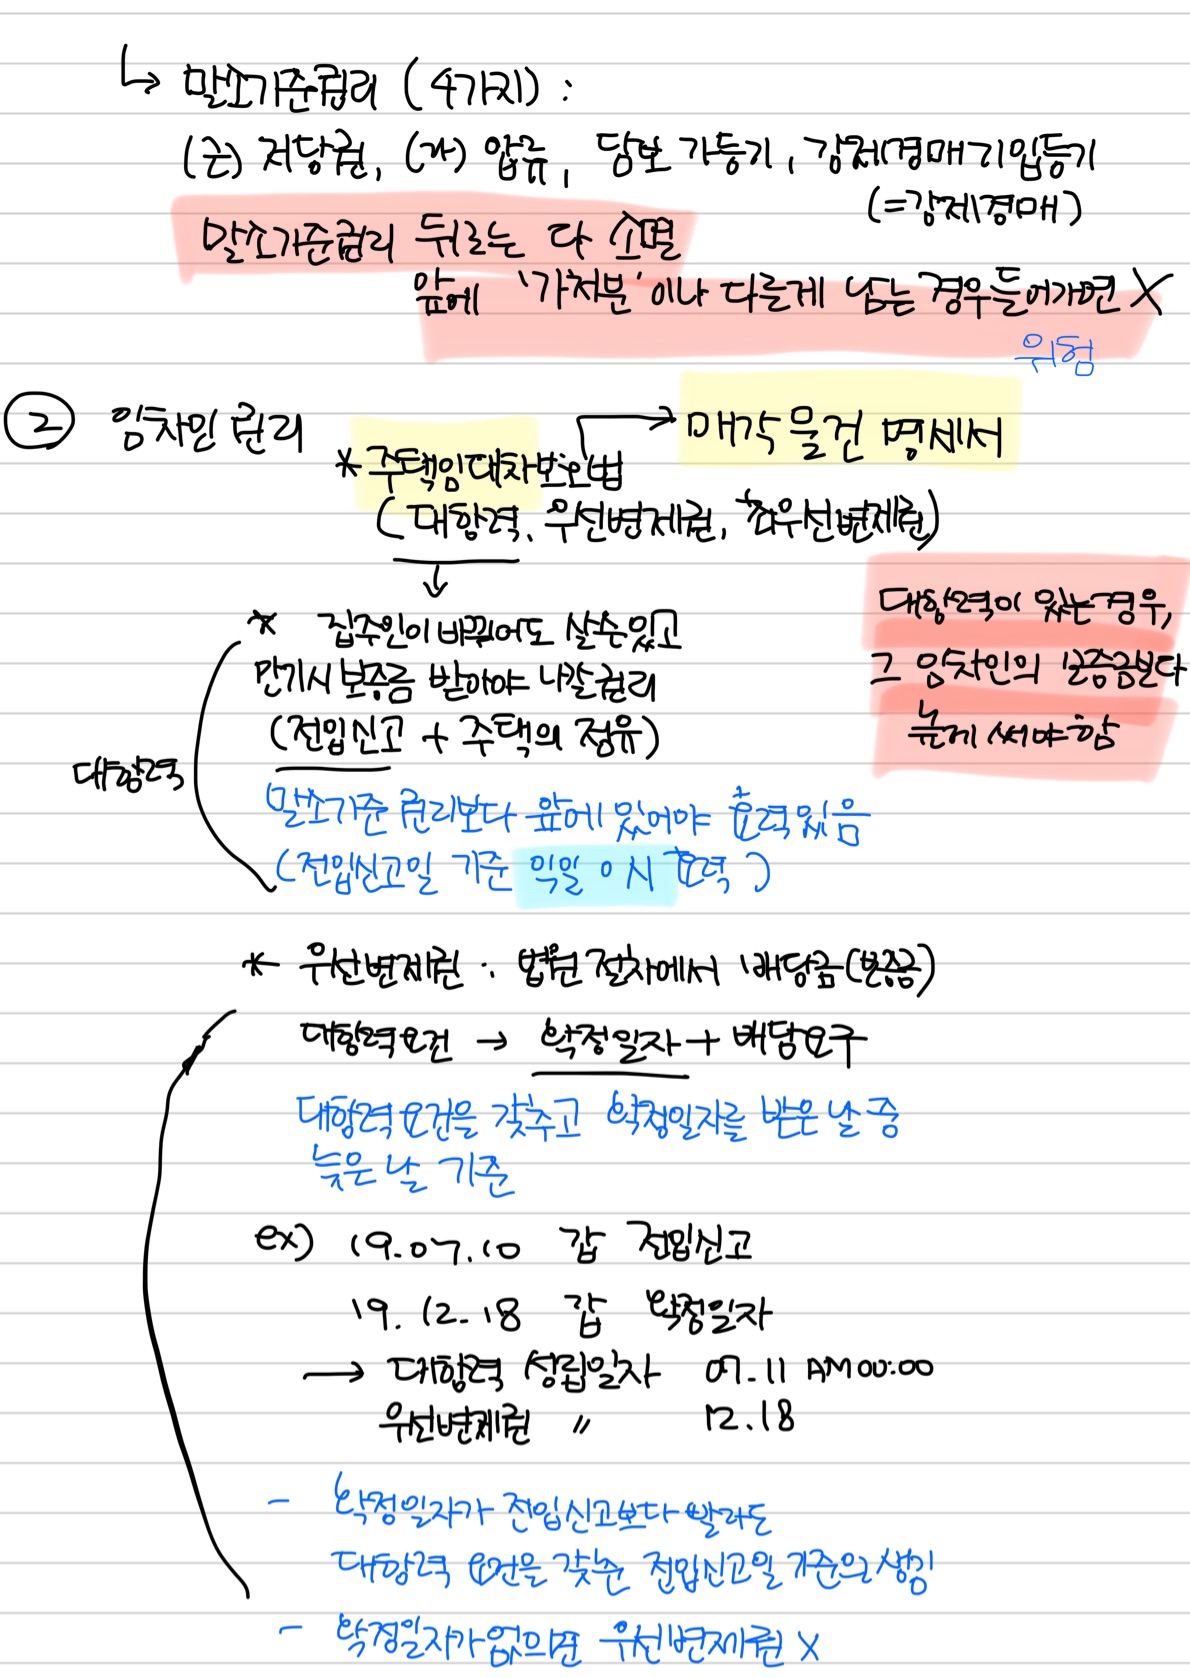 ↳ 말소기준권리 (4가지) :
(근) 저당권, (가) 압류, 담보 가등기, 강제경매기입등기
(=강제경매)
말소기준권리 뒤로는 다 소멸
앞에 '가처분'이나 다른게 남는 경우 들어가면 X
위험
② 임차인 권리
→ 매각 물건 명세서
* 주택임대차보호법
(대항력, 우선변제권, 최우선변제권)
↓
* 집주인이 바뀌어도 살 수 있고
만기시 보증금 받아야 나갈 권리
(전입신고 + 주택의 점유)
대항력
말소기준 권리보다 앞에 있어야 효력있음
(전입신고일 기준 익일 0시 효력)
대항력이 있는 경우,
그 임차인의 보증금보다
높게 써야함
* 우선변제권 : 법원 절차에서 배당금(보증금)
대항력요건 → 확정일자 + 배당요구
대항력 요건을 갖추고 확정일자를 받은 날 중
늦은 날 기준
ex) 19.07.10 갑 전입신고
19.12.18 갑 확정일자
→ 대항력 성립일자 07.11 AM 00:00
우선변제권 〃 12.18
- 확정일자가 전입신고보다 빨라도
대항력 요건을 갖춘 전입신고일 기준으로 생김
- 확정일자가 없으면 우선변제권 X